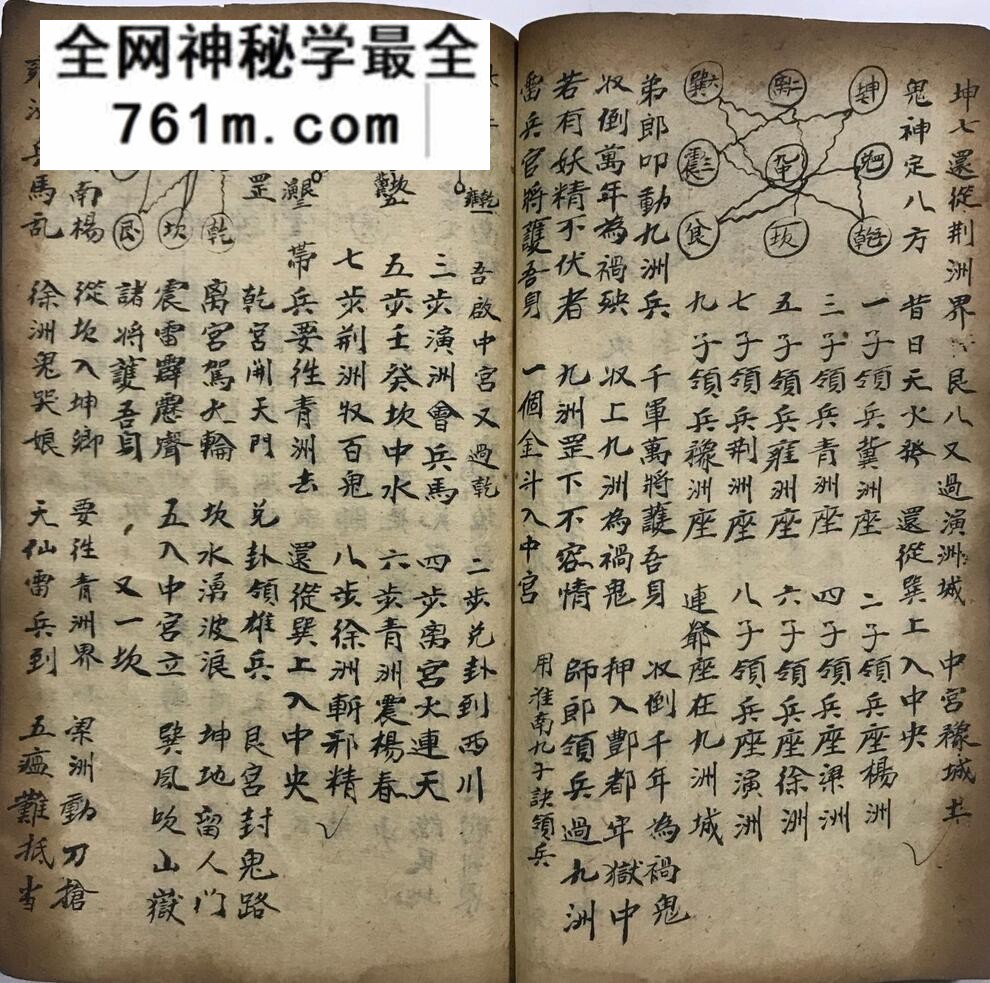 全网神秘学最全
761m.com
坤七還從荆洲界 艮八又過演洲城 中宮豫城土
鬼神定八方 昔日天火發 還從巽上入中央
坤
乾
二
巽六
震三
九中
艮
坎
一子領兵冀洲座 二子領兵座楊洲
三子領兵青洲座 四子領兵座梁洲
五子領兵雍洲座 六子領兵座徐洲
七子領兵荆洲座 八子領兵座演洲
九子領兵豫洲座 連爺座在九洲城
弟郎叩動九洲兵 千軍萬將護吾身 收倒千年為禍鬼
收倒萬年為禍殃 收上九洲為禍鬼 押入酆都牢獄中
若有妖精不伏者 九洲罡下不容情 師郎領兵過九洲
雷兵官將護吾身 一個金斗入中宮 用淮南九子訣領兵
雍乾一
坎五
演艮三
罡
乾
坎
艮
吾啟中宮又過乾 二步兑卦到西川
三步演洲會兵馬 四步离宮火連天
五步壬癸坎中水 六步青洲震楊春
七步荆洲收百鬼 八步徐洲斬邪精
帶兵要徃青洲去 還從巽上入中央
乾宮開天門 兑卦領雄兵 艮宮封鬼路
离宮駕火輪 坎水湧波浪 坤地留人门
震雷霹靂聲 五入中宮立 巽風吹山嶽
諸將護吾身 又一坎
南楊 從坎入坤鄉 要徃青洲界 梁洲動刀搶
兵馬乱 徐洲鬼哭娘 天仙雷兵到 五瘟難抵当